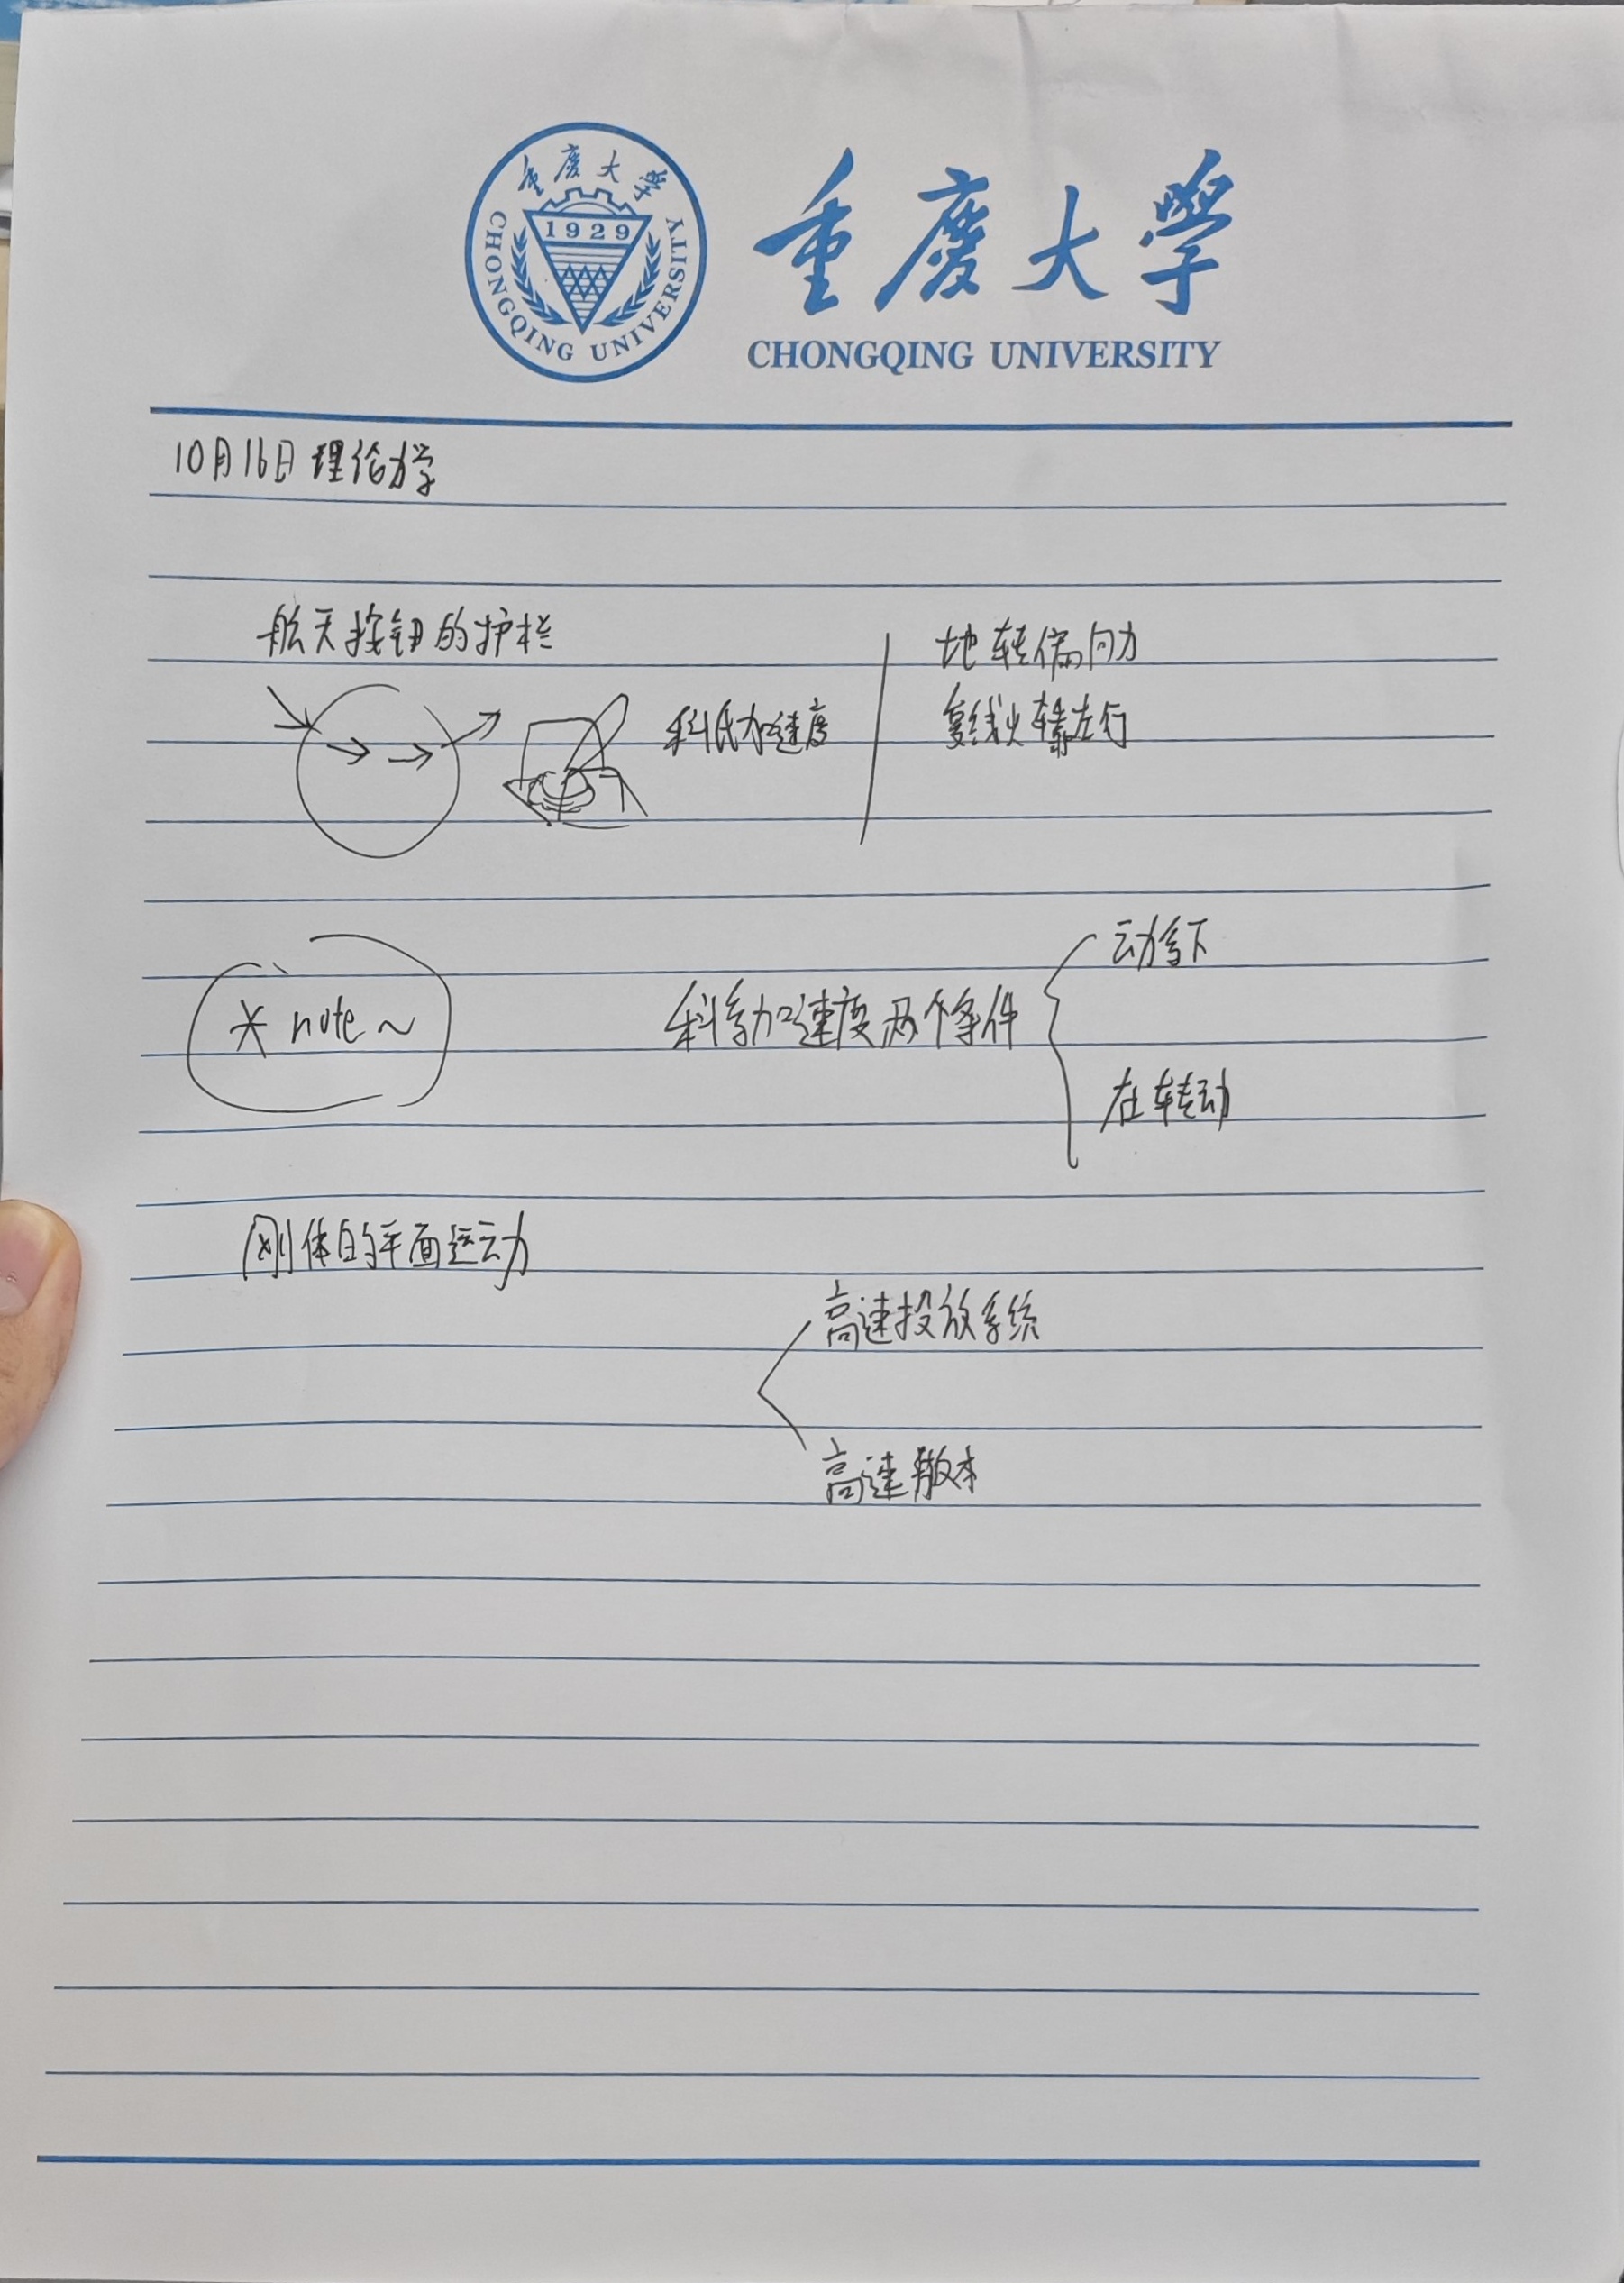 重慶大學
1929
CHONGQING UNIVERSITY
重慶大學
CHONGQING UNIVERSITY
10月16日 理论力学
航天按钮的护栏
科氏加速度
地转偏向力
复线火车靠左行
* note~
科氏加速度两个条件
动系下
在转动
刚体的平面运动
高速投放系统
高速版本